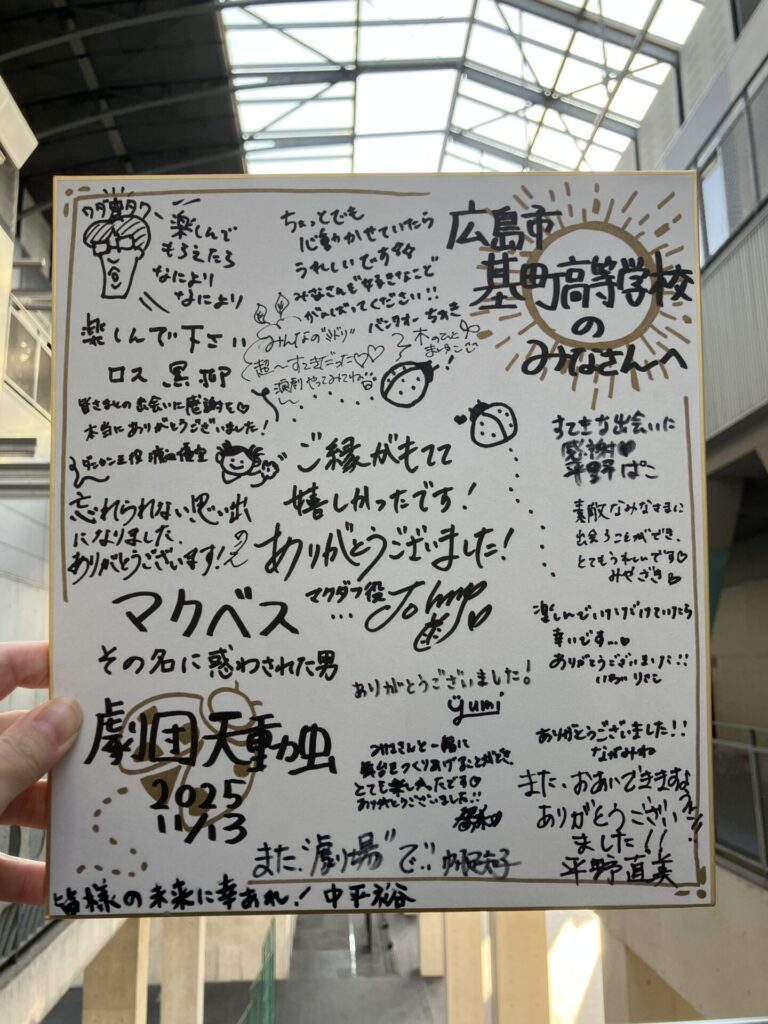 広島市
基町高等学校
の
みなさんへ
楽しんで
もらえたら
なにより
なにより
ちょっとでも
心動かせていたら
うれしいです
みなさんも好きなことで
がんばってください!!
バンクオー ちあき
楽しんで下さい
ロス 黒柳
みんなの"みどり"
超〜すてきだった♡♡
演劇やってみてね
皆さまとの出会いに感謝を
本当にありがとうございました!
ダンカン王役
ご縁がもてて
嬉しかったです!
ありがとうございました!
マクダフ役
忘れられない思い出
になりました
ありがとうございます!
のん
すてきな出会いに
感謝♥
平野ぱこ
素敵なみなさまに
出会うことができ、
とてもうれしいです♡
みやざき
マクベス
その名に惑わされた男
楽しんでいただけていたら
幸いです…
ありがとうございました!!
ありがとうございました!
yumi
劇団天動虫
2025
11/13
みなさんと一緒に
舞台をつくりあげることができ、
とても楽しかったです♡
ありがとうございました!!
ありがとうございました!!
ながみね
また、おあいできますよう
ありがとうござい
ました!!
平野直美
また、"劇場"で!!
皆様の未来に幸あれ!